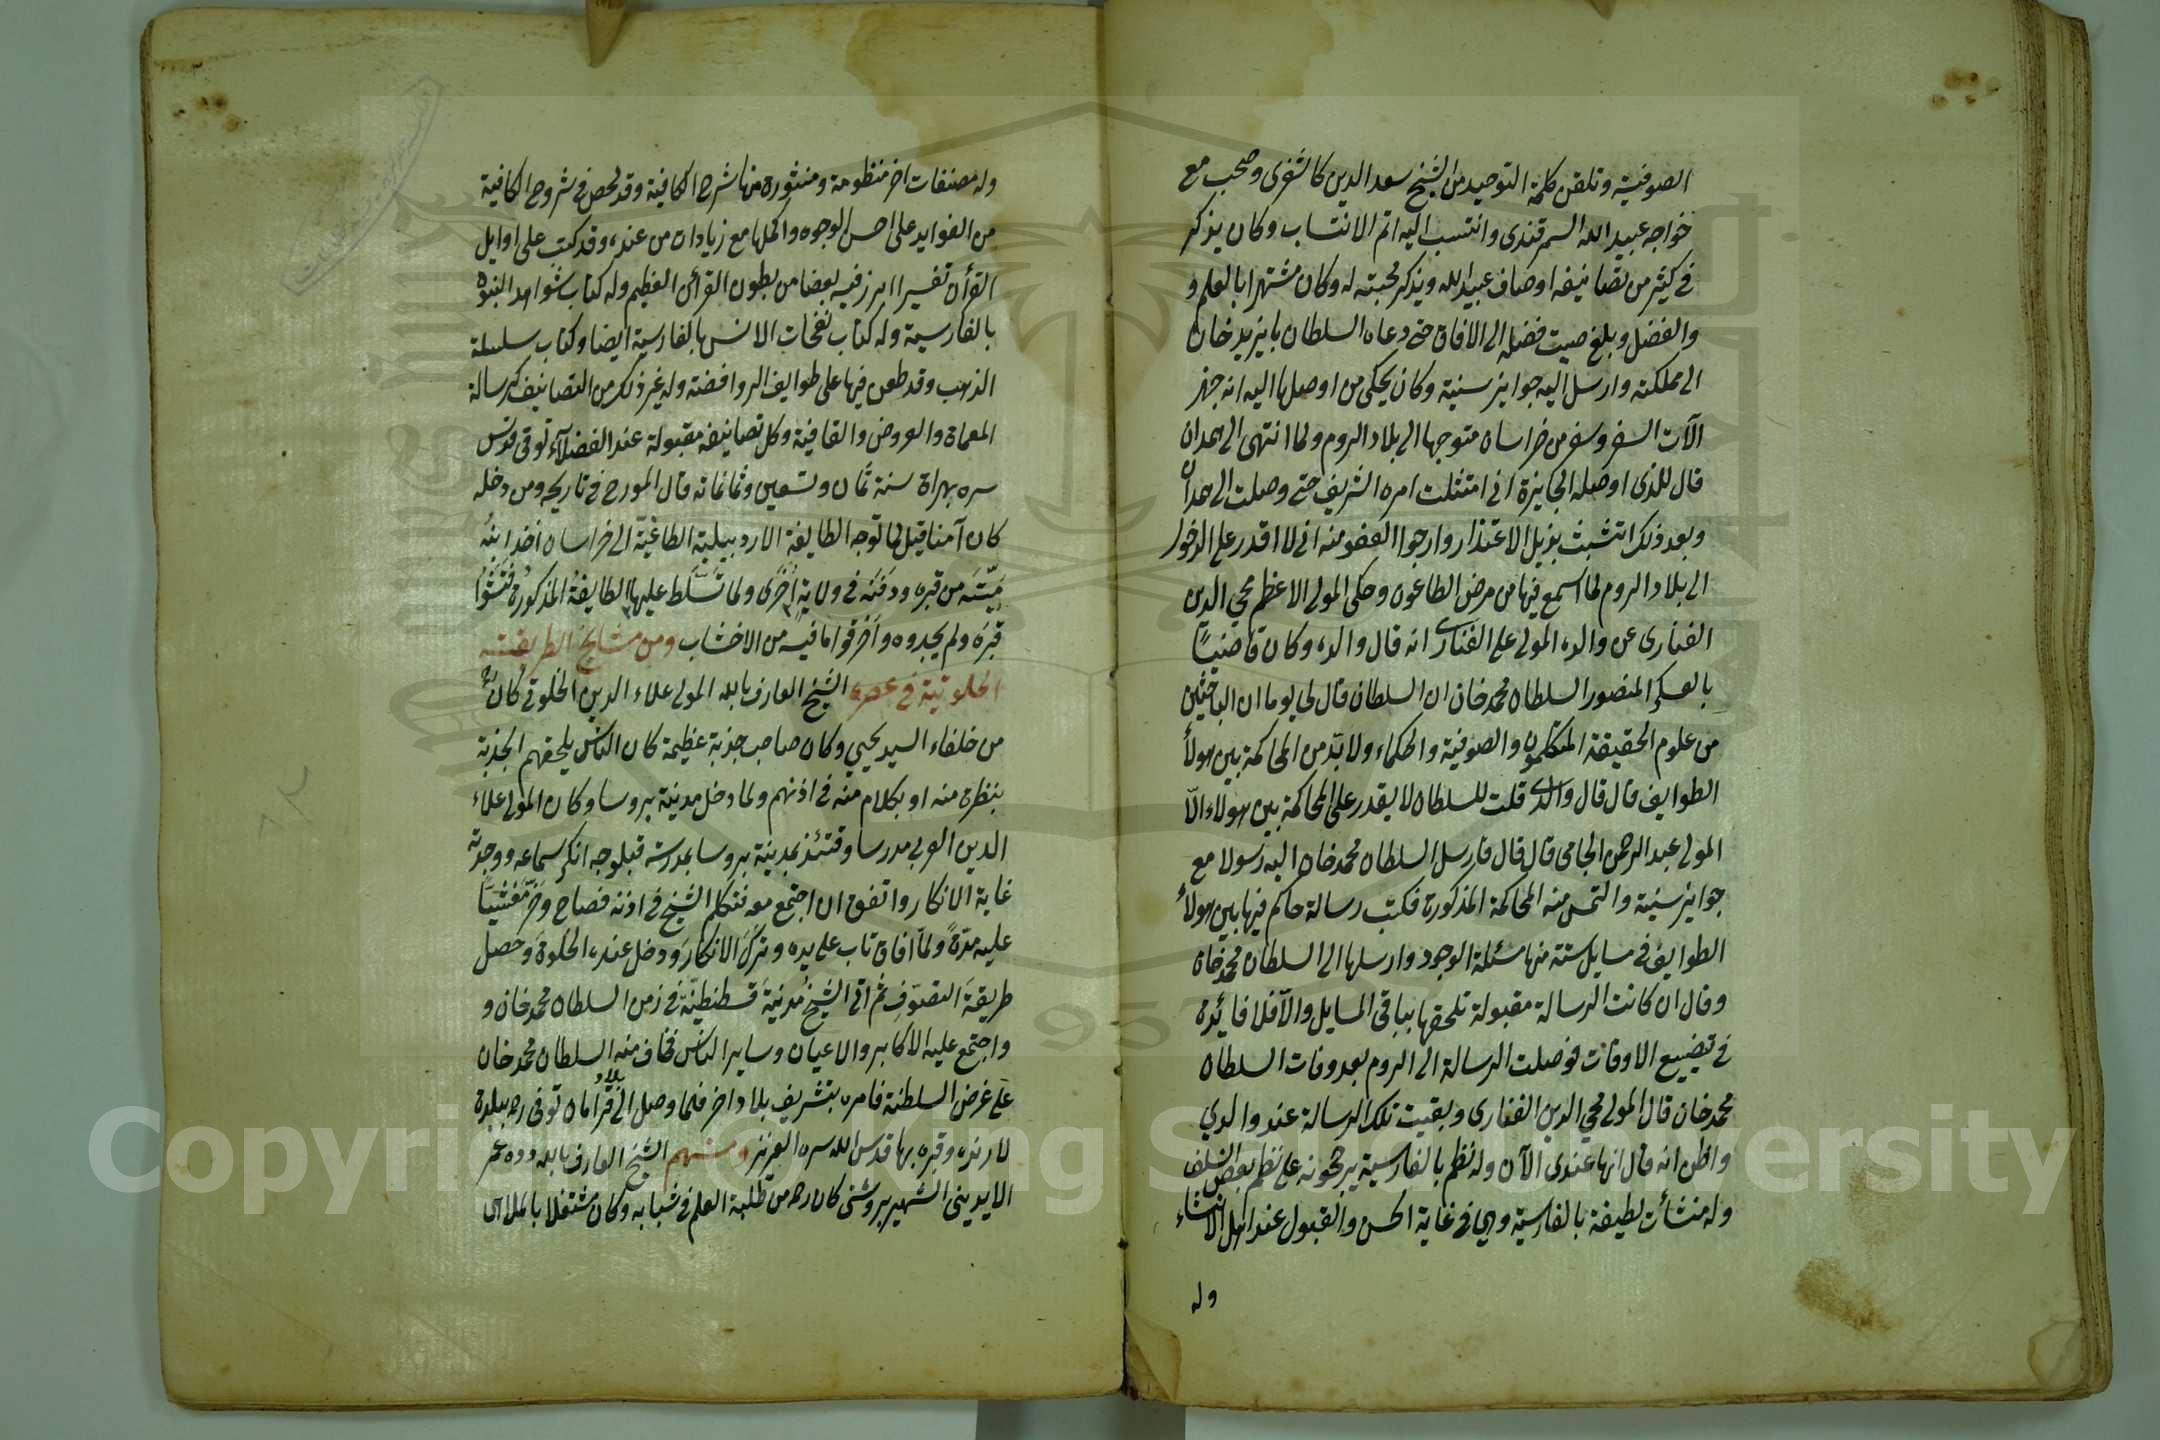 الصوفية وتلقن كلمة التوحيد من الشيخ سعد الدين كاشغرى وصحب مع
خواجه عبيد الله السمرقندى وانتسب اليه اتم الانتساب وكان يذكر
فى كثير من تصانيفه اوصاف عبيد الله ويذكر محبته له وكان مشتهرا بالعلم و
والفضل وبلغ صيت فضله الى الافاق حتى دعاه السلطان بايزيد خان
الى مملكته وارسل اليه جوايز سنية وكان يحكى من اوصلها اليه انه جهز
آلات السفر وسفر من خراسان متوجها الى بلاد الروم ولما انتهى الى همدان
قال للذى اوصله الجايزة انى امتثلت امره الشريف حتى وصلت الى همدان
وبعد ذلك اتشبث بذيل الاعتذار وارجوا العفو منه انى لا اقدر على الدخول
الى بلاد الروم لما اسمع فيها من مرض الطاعون وحكى المولى الاعظم محيى الدين
الفنارى عن والده المولى على الفنارى انه قال والده وكان قاضيًا
بالعسكر المنصور السلطان محمد خان ان السلطان قال لى يوما ان الباحثين
من علوم الحقيقة المتكلمون والصوفية والحكماء ولا بدّ من المحاكمة بين هولاء
الطوايف قال قال والدى قلت للسلطان لا يقدر على المحاكمة بين هولاء الّا
المولى عبد الرحمن الجامى قال قال فارسل السلطان محمد خان اليه رسولا مع
جوايز سنية والتمس منه المحاكمة المذكورة فكتب رسالة حاكم فيها بين هولاء
الطوايف فى مسايل ستة منها مسئلة الوجود وارسلها الى السلطان محمد خان
وقال ان كانت الرسالة مقبولة تلحقها بباقى المسايل والّا فلا فائدة
فى تضييع الاوقات فوصلت الرسالة الى الروم بعد وفات السلطان
محمد خان قال المولى محيى الدين الفنارى وبقيت تلك الرسالة عند والدي
واظن انه قال انها عندى الآن وله نظم بالفارسية يرجحونه على نظم بعض السلف
وله منشأت لطيفة بالفارسية وهى فى غاية الحسن والقبول عند اهل الانشاء
وله
وله مصنفات اخر منظومة ومنثورة منها شرح الكافية وقد لخص فى شروح الكافية
من الفوايد على احسن الوجوه واكملها مع زيادات من عنده وقد كتب على اوايل
القرأن تفسيرا ابرز فيه بعضا من بطون القرأن العظيم وله كتاب شواهد النبوة
بالفارسية وله كتاب نفحات الانس بالفارسية ايضا وكتاب سلسلة
الذهب وقد طعن فيها على طوايف الروافضة وله غير ذلك من التصانيف كرسالة
المعماة والعروض والقافية وكل تصانيفه مقبولة عند الفضلاء توفى قدس
سره بهراة سنة ثمان وتسعين وثمانمائة قال المورخ فى تاريخه ومن دخله
كان آمنا قيل لما توجه الطايفة الاردبيلية الطاغية الى خراسان اخذ ابنُهُ
ميّتَه من قبره ودفنَه فى ولاية اُخرى ولما تسَلّط عليها الطايفةُ المذكورةُ فتّشُوا
قبرَه ولم يجدوه واَحرقوا ما فيه من الاخشاب ومن مشايخ الطريقتة
الخلوتية فى عصره الشيخ العارف بالله المولى علاء الدين الخلوتى كان
من خلفاء السيد يحيى وكان صاحب جذبة عظيمة كان الناس يلحقهم الجذبة
بنظرة منه او بكلام منه فى اذنهم ولما دخل مدينة بروسا وكان المولى علاء
الدين العربى مدرسا وقتئذ بمدينة بروسا بمدرسة قبلوجه انكر سماعه ووجدته
غاية الانكار واتفق ان اجتمع معه فتكلم الشيخ فى اذنه فصاح وخرّ مغشيًّا
عليه مدّةً ولمّا افاق تاب على يده وتركَ الانكارَ ودخل عنده الخلوةَ وحصل
طريقةَ التصوّفِ ثم اتى الشيخُ مدينةَ قسطنطنيّة فى زمن السلطان محمد خان و
واجتمع عليه الاكابر والاعيان وساير الناس فخاف منه السلطان محمد خان
على غرض السلطنة فامره بتشريف بلاد اخر فلما وصل الى بلاد قرامان توفى ره ببلدة
لارنده وقبره بها قدس الله سره العزيز ومنهم الشيخ العارف بالله دده عمر
الايدينى الشهير بروشنى كان ره من طلبة العلم فى شبابه وكان مشتغلا بالملاهى
Copyright © King Saud University